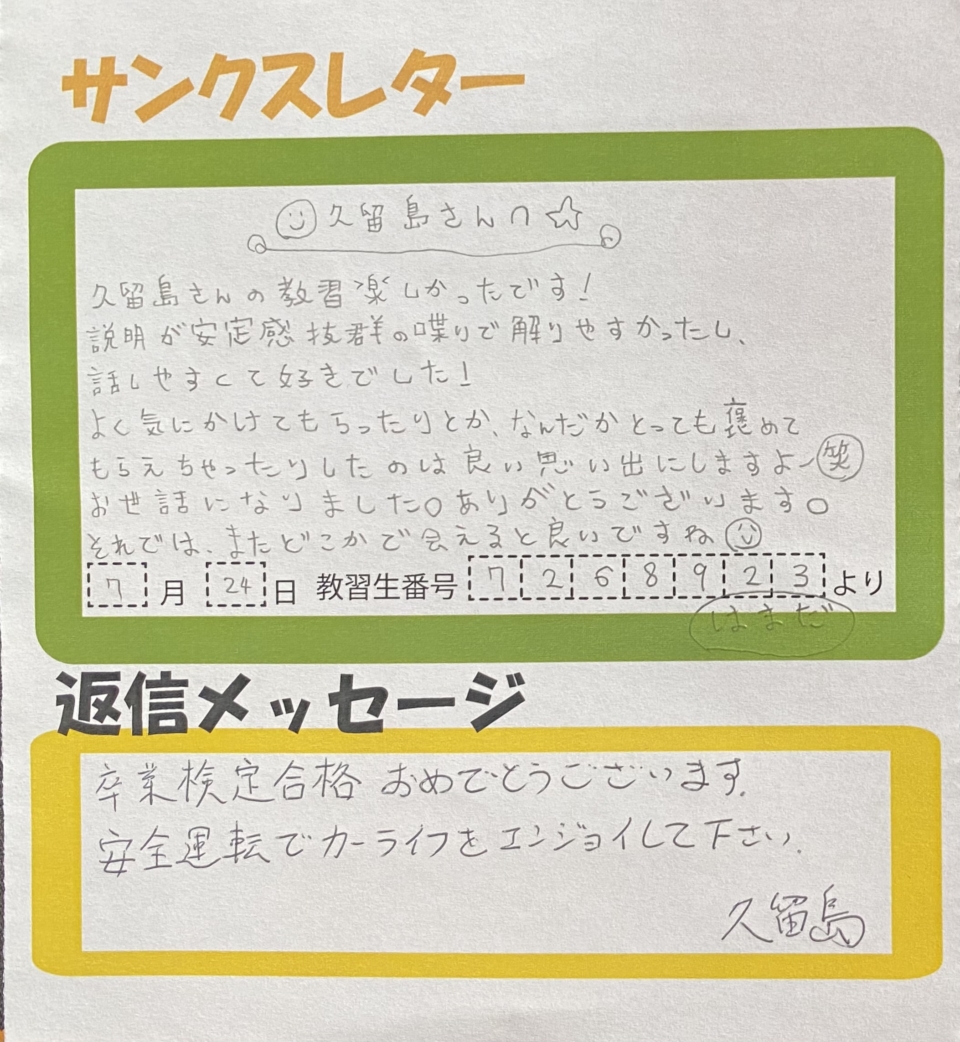 サンクスレター
久留島さんへ☆
久留島さんの教習楽しかったです!
説明が安定感抜群の喋りで解りやすかったし、
話しやすくて好きでした!
よく気にかけてもらったりとか、なんだかとっても褒めて
もらえちゃったりしたのは良い思い出にしますよ~笑
お世話になりました。ありがとうございます。
それでは、またどこかで会えると良いですね
7月24日 教習生番号 7268923より
はまだ
返信メッセージ
卒業検定合格おめでとうございます。
安全運転でカーライフをエンジョイして下さい.
久留島